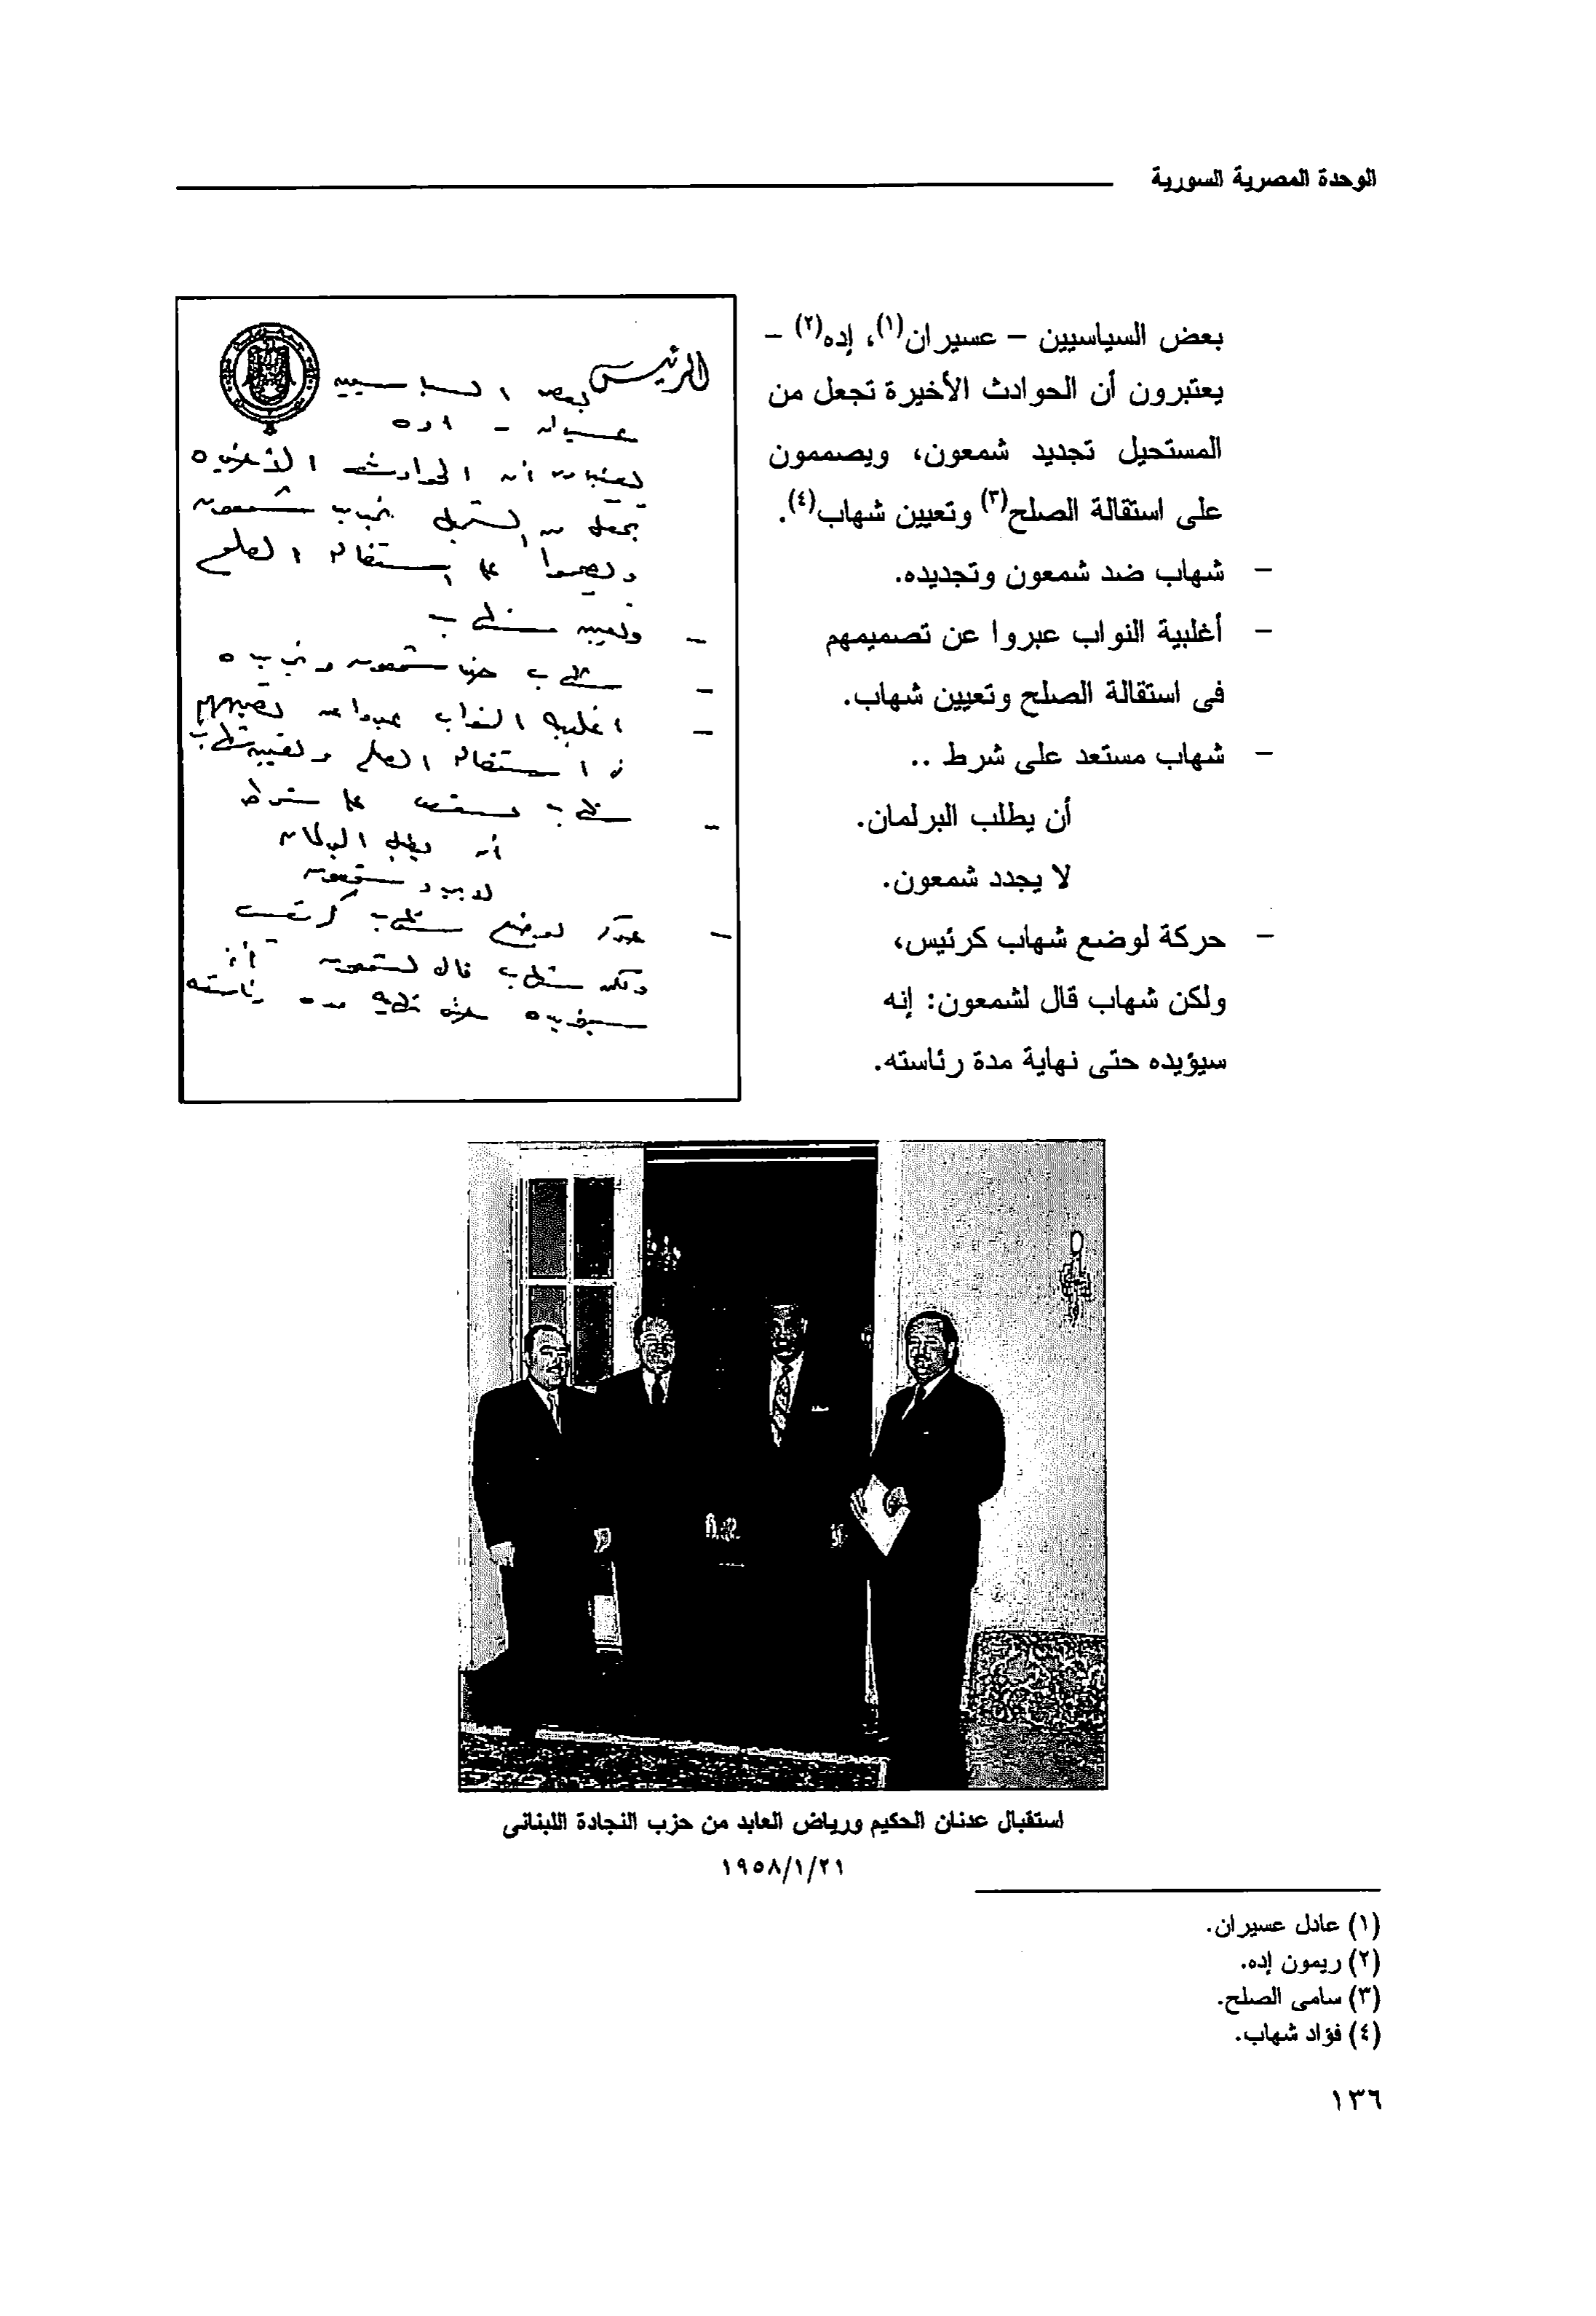 الوحدة المصرية السورية
بعض السياسيين – عسيران(١)، إده(٢) –
يعتبرون أن الحوادث الأخيرة تجعل من
المستحيل تجديد شمعون، ويصممون
على استقالة الصلح(٣) وتعيين شهاب(٤).
– شهاب ضد شمعون وتجديده.
– أغلبية النواب عبروا عن تصميمهم
فى استقالة الصلح وتعيين شهاب.
– شهاب مستعد على شرط ..
أن يطلب البرلمان.
لا يجدد شمعون.
– حركة لوضع شهاب كرئيس،
ولكن شهاب قال لشمعون: إنه
سيؤيده حتى نهاية مدة رئاسته.
الرئيس
بعض السياسيين
عسيران - اده
يعتبروا أن الحوادث الأخيرة
تجعل من المستحيل تجديد شمعون
ويصمموا على استقالة الصلح
وتعيين شهاب
– شهاب ضد شمعون وتجديده
– اغلبية النواب عبروا عن تصميمهم
فى استقالة الصلح وتعيين شهاب
– شهاب مستعد على شرط
أن يطلب البرلمان
لا يجدد شمعون
– لوضع شهاب كرئيس
ولكن شهاب قال لشمعون أنه
سيؤيده حتى نهاية مدة رئاسته
استقبال عدنان الحكيم ورياض العابد من حزب النجادة اللبنانى
١٩٥٨/١/٢١
(١) عادل عسيران.
(٢) ريمون إده.
(٣) سامى الصلح.
(٤) فؤاد شهاب.
١٣٦